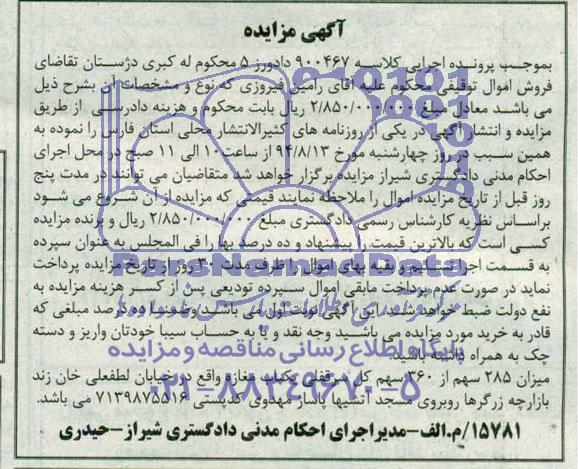 آگهی مزایده
بموجب پرونده اجرایی کلاسه ۹۰۰۴۶۷ دادورز ۵ محکوم له کبری دژستان تقاضای
فروش اموال توقیفی محکوم علیه آقای رامین فیروزی که نوع و مشخصات آن بشرح ذیل
می باشد معادل مبلغ ۲/۸۵۰/۰۰۰/۰۰۰ ریال بابت محکوم و هزینه دادرسی از طریق
مزایده و انتشار آگهی در یکی از روزنامه های کثیرالانتشار محلی استان فارس را نموده به
همین سبب در روز چهارشنبه مورخ ۹۴/۸/۱۳ از ساعت ۱۰ الی ۱۱ صبح در محل اجرای
احکام مدنی دادگستری شیراز مزایده برگزار خواهد شد متقاضیان می توانند در مدت پنج
روز قبل از تاریخ مزایده اموال را ملاحظه نمایند قیمتی که مزایده از آن شروع می شود
براساس نظریه کارشناس رسمی دادگستری مبلغ ۲/۸۵۰/۰۰۰/۰۰۰ ریال و برنده مزایده
کسی است که بالاترین قیمت را پیشنهاد و ده درصد بها را فی المجلس به عنوان سپرده
به قسمت اجرا تسلیم و بقیه بهای اموال را ظرف مدت ۳۰ روز از تاریخ مزایده پرداخت
نماید در صورت عدم پرداخت مابقی اموال سپرده تودیعی پس از کسر هزینه مزایده به
نفع دولت ضبط خواهد شد این آگهی نوبت اول می باشد و ده درصد مبلغی که
قادر به خرید مورد مزایده می باشید وجه نقد و یا به حساب سیبا خودتان واریز و دسته
چک به همراه داشته باشید.
میزان ۲۸۵ سهم از ۳۶۰ سهم کل سرقفلی یکباب مغازه واقع در خیابان لطفعلی خان زند
بازارچه زرگرها روبروی مسجد آتشیها پاساژ مهدوی کدپستی ۷۱۳۹۸۷۵۵۱۶ می باشد.
۱۵۷۸۱/م.الف-مدیراجرای احکام مدنی دادگستری شیراز-حیدری
ParsNamadData
پایگاه اطلاع رسانی مناقصه و مزایده
۰۲۱-۸۸۳۴۹۶۷۰-۵